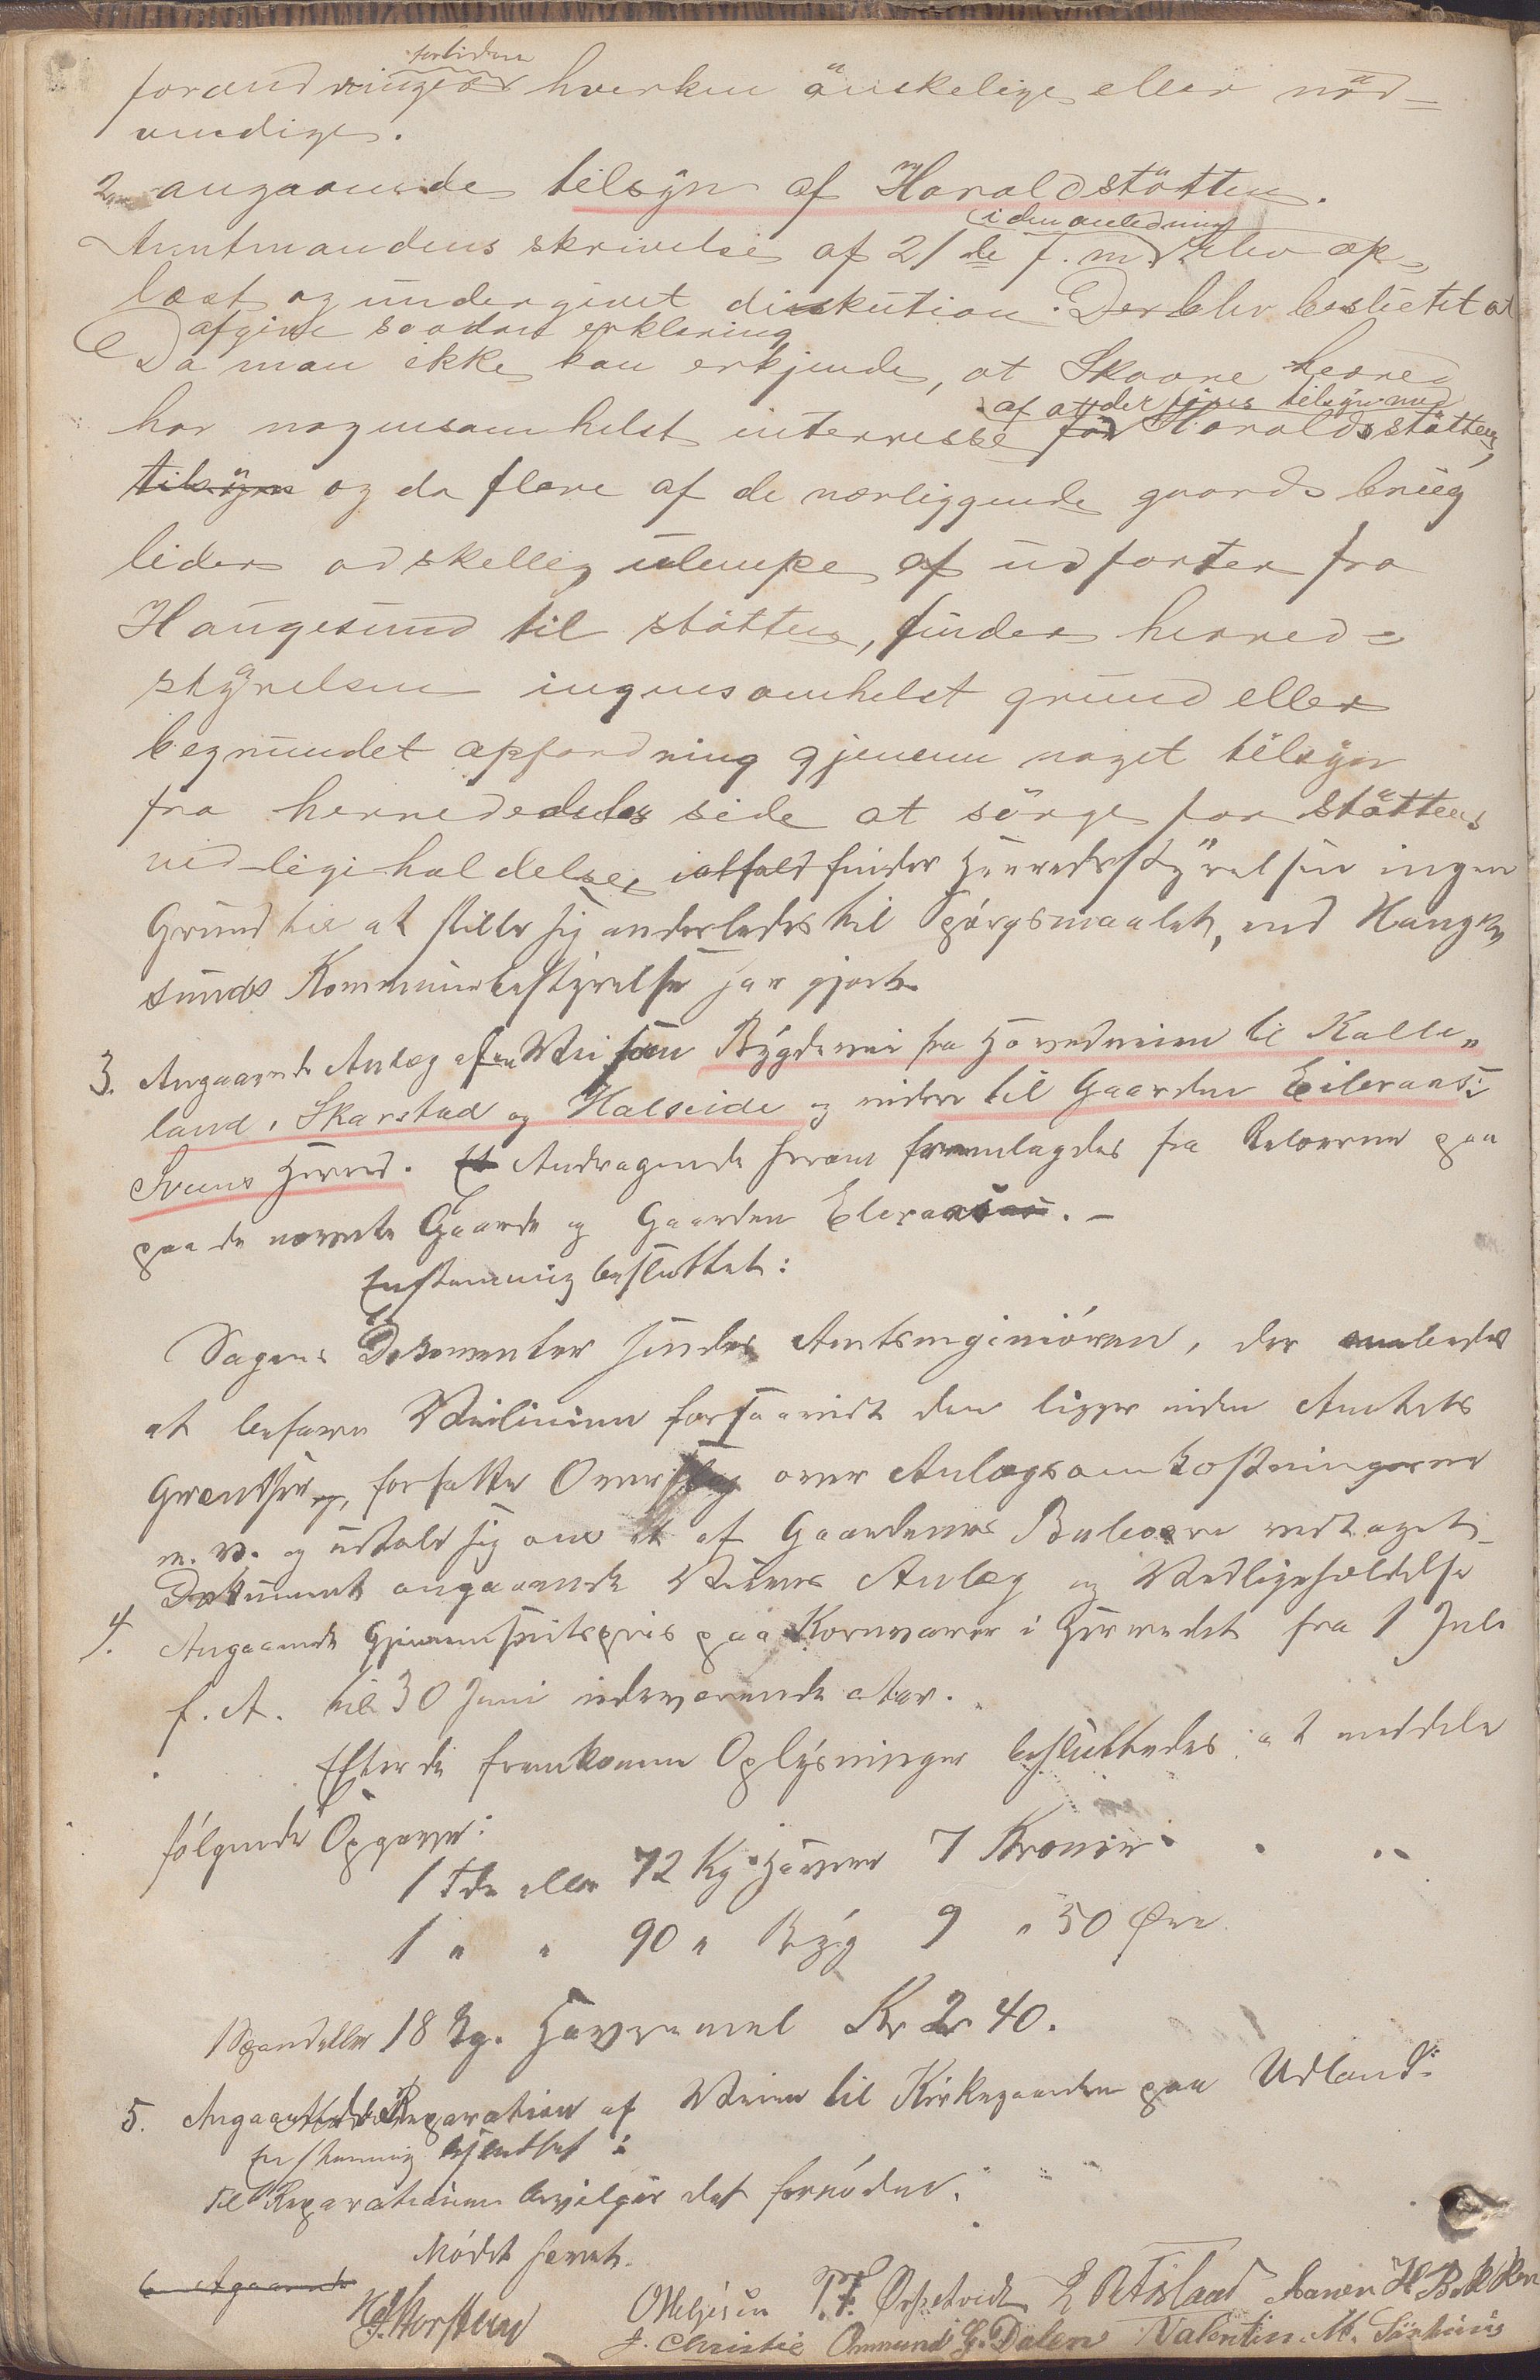 fortiden
forandringer hverken önskelige eller nöd-
vendige.
2. angaaende tilsyn af Haraldstötten.
i den anledning
Amtmandens skrivelse af 21de f. m. blev op-
læst og undergivet diskution. Der blev besluttet at
afgive saadan erklæring
Da man ikke kan erkjende, at Skaare herred
af at der föres tilsyn med
har nogensomhelst interresse for Haraldsstötten,
tilsyn og da flere af de nærliggende gaards brug
lider adskellig ulempe af udfarter fra
Haugesund til stötten, finder herred-
styrelsen ingensomhelst grund eller
begrundet opfordring gjenem noget tilsyn
fra herrededets side at sörge for stöttens
vedligeholdelse, ialfald finder Herredsstyrelsen ingen
Grund til at stille sig anderledes til Spörgsmaalet, end Hauge-
sunds Kommunebestyrelse har gjort.
3. Angaaende Anlæg af en Vei som Bygdevei fra Hovedveien til Kalle-
land, Skarstad og Halseide og videre til Gaarden Eileraas i
Sveens Herred. Et Andragende herom fremlagdes fra Beboerne paa
paa de nævnte Gaarde og Gaarden Eleraas. -
Enstemmig besluttet:
Sagens Dokumenter sendes Amtsingeniören, der anbedes
at befare Veilinien forsaavidt den ligger inden Amtets
Grændser, forfatte Overslag over Anlægsomkostningerne
m. v. og udtale sig om et af Gaardenes Beboere vedtaget
Dokument angaaende Veiens Anlæg og Vedligeholdelse
4. Angaaende Gjennemsnitspris paa Kornvarer i Herredet fra 1 Juli
f. A. til 30 Juni indeværende Aar.
Efter de fremkomne Oplysninger besluttedes at meddele
fölgende Opgave:
1 Tde eller 72 Kg. Havre 7 Kroner
1 " " 90 " Byg 9 " 50 Øre
1 Spand eller 18 Kg. Havremel Kr 2 40.
5. Angaaende Reparation af Veien til Kirkegaarden paa Udland:
Enstemmig besluttet:
Til Reparationen bevilges det fornödne.
Mödet hævet.
6 Agaaende
O Helgesen T. F. Østetvedt E Aanen H Bakken
J. Christie Ommund G. Dalen Valentin. M.